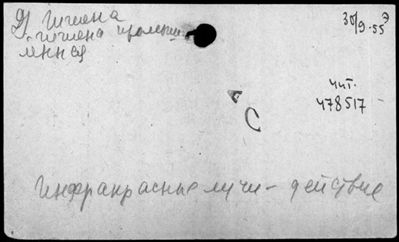 9) Гигиена
- гигиена промыш-
ленная
30/9-55 Э
чит.
478517
А
С
Инфракрасные лучи - действие